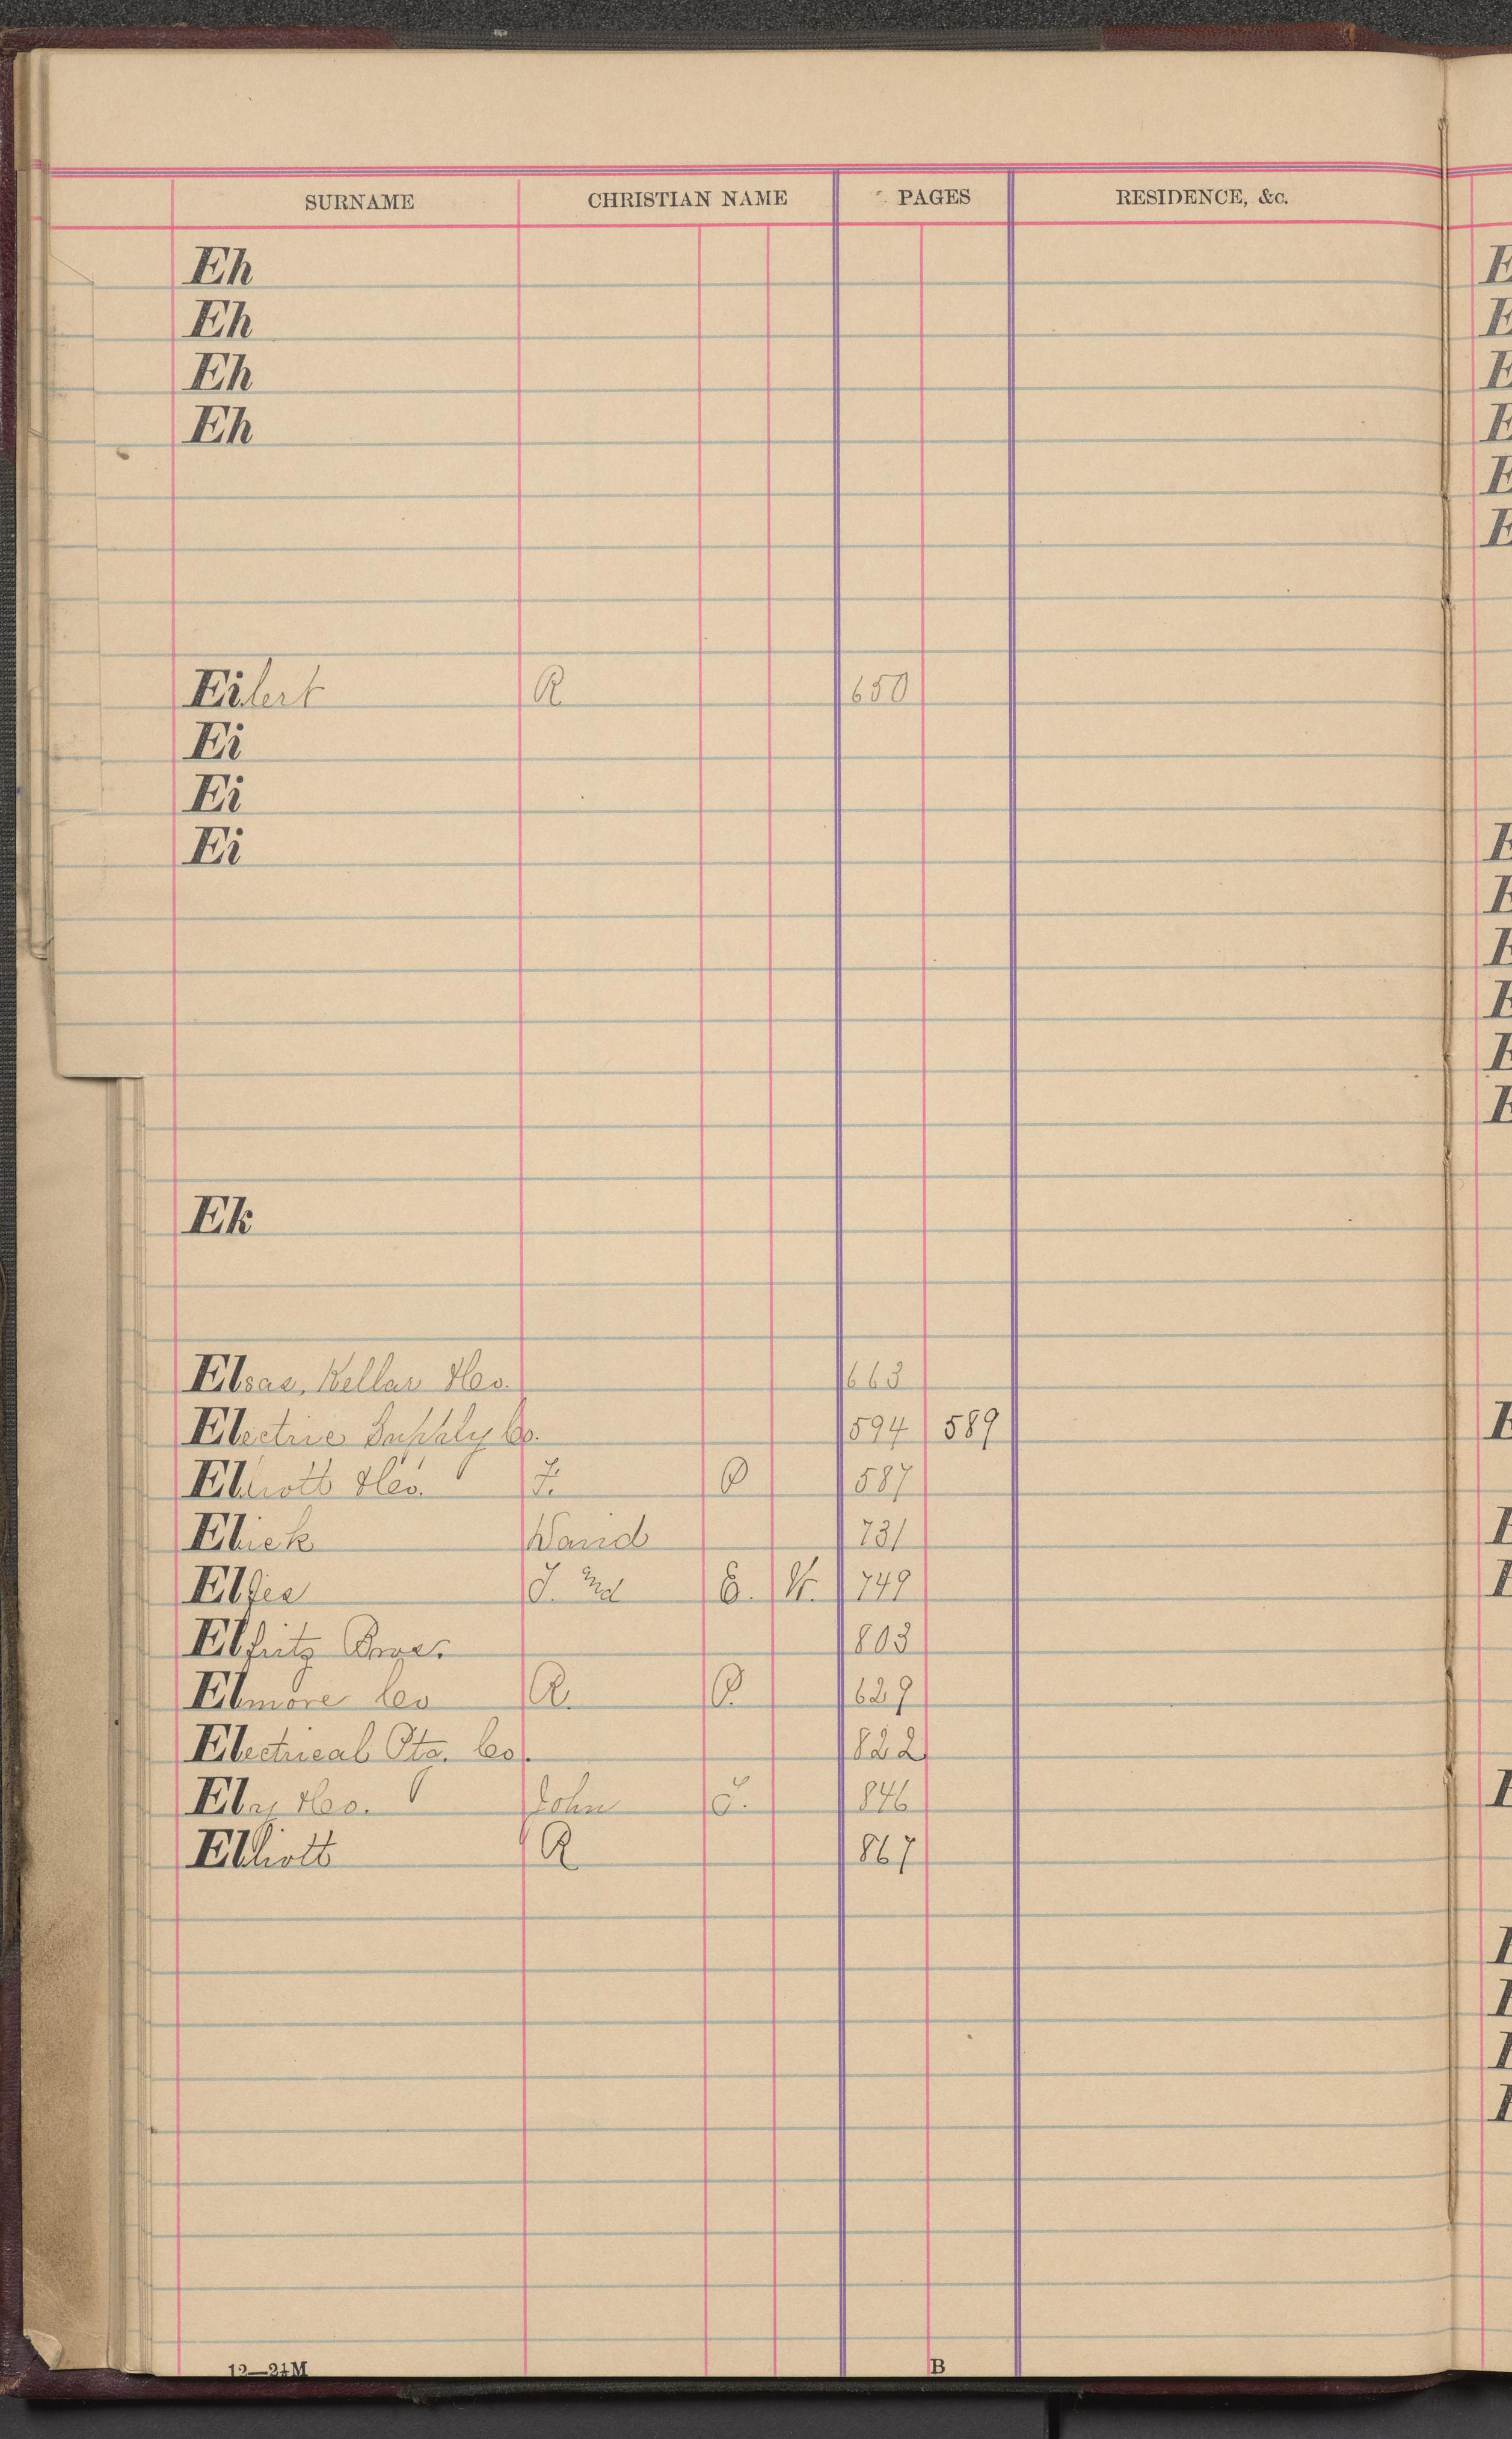 SURNAME CHRISTIAN NAME PAGES RESIDENCE, &c.
Eh
Eh
Eh
Eh
Eilert R 650
Ei
Ei
Ei
Ek
Elsas, Kellar &Co. 663
Electric Supply Co. 594 589
Elliott &Co. F. O 587
Elick David 731
J. E. V. 749
Elfritz Bros. 803
Elmore Co R. P. 629
Electrical Co. 822
Ely &Co. John J. 846
Elliott R 867
12—21M B